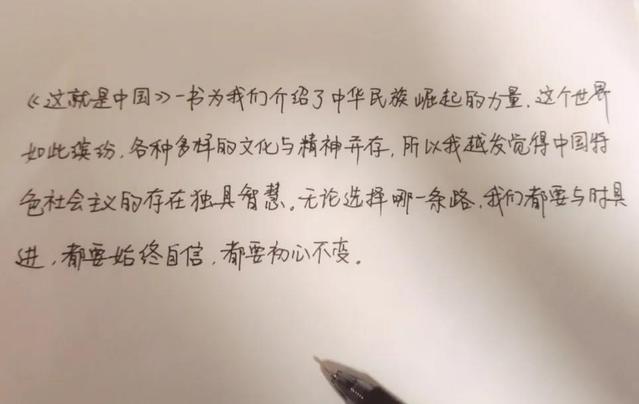 《这就是中国》一书为我们介绍了中华民族崛起的力量，这个世界
如此缤纷，各种多样的文化与精神并存，所以我越发觉得中国特
色社会主义的存在独具智慧。无论选择哪一条路，我们都要与时具
进，都要始终自信，都要初心不变。